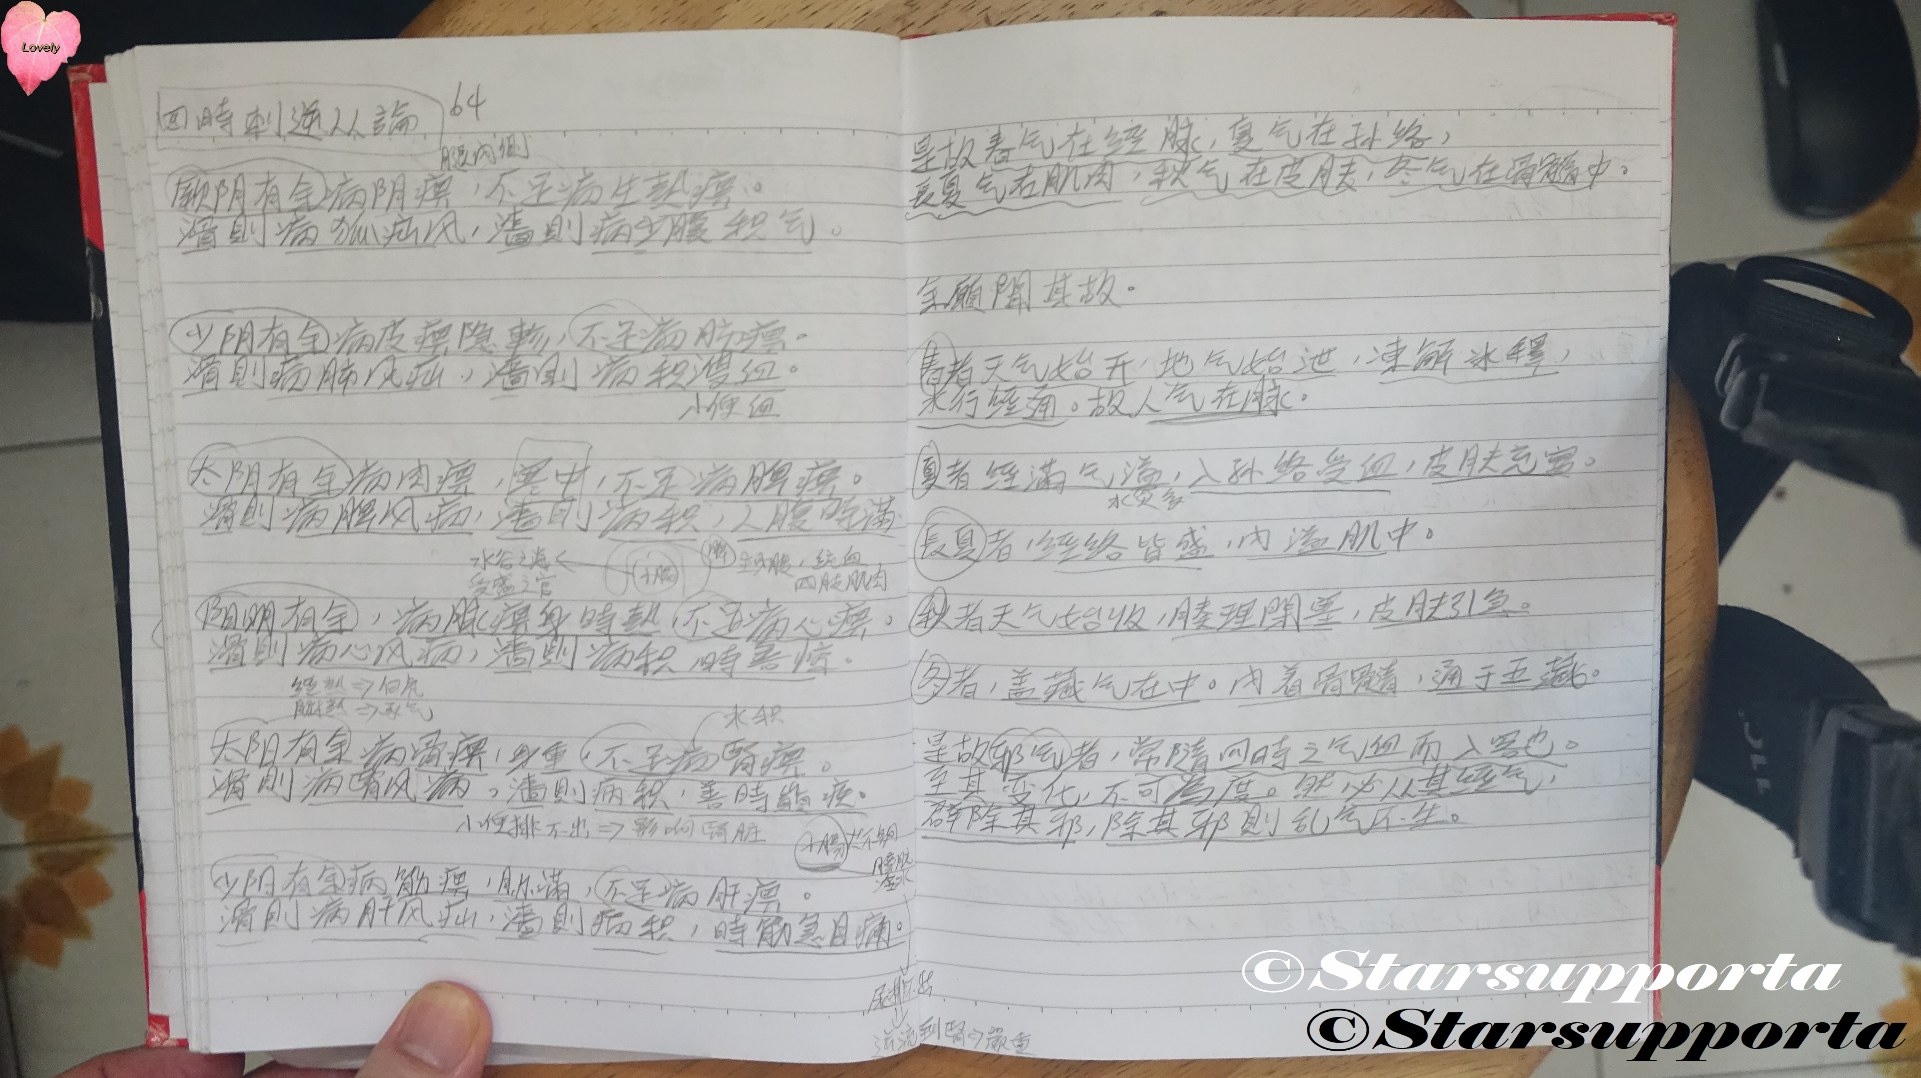 Lovely
四時刺逆从論 64
腿内側
厥阴有余病阴痹，不足病生熱痹。
滑則病狐疝风，濇則病少腹积气。
少阴有余病皮痹隐軫，不足病肺痹。
滑則病肺风疝，濇則病积溲血。
小便血
太阴有余病肉痹，寒中，不足病脾痹。
濇則病积，心腹時滿
水谷之海 小腸 主腹，統血
受盛之官 四肢肌肉
阳明有余，病脉痹身時熱，不足病心痹。
滑則病心风疝，濇則病积，時善惊。
水积
太阳有余病骨痹，身重，不足病腎痹。
滑則病腎风疝，濇則病积，善時巅疾。
小便排不出⇒影响腎脏
少阳有余病筋痹，脉滿，不足病肝痹。
滑則病肝风疝，濇則病积，時筋急目痛。
尿排不出
逆流到腎⇒嚴重
是故春气在经脉，夏气在孙络，
長夏气在肌肉，秋气在皮肤，冬气在骨髓中。
余願聞其故。
春者天气始开，地气始泄，凍解冰释，
水行经通。故人气在脉。
夏者经滿气溢，入孙络受血，皮肤充实。
長夏者，经络皆盛，内溢肌中。
秋者天气始收，腠理閉塞，皮肤引急。
冬者，盖藏气在中。内着骨髓，通于五藏。
是故邪气者，常隨四時之气血而入客也。
至其变化，不可為度。然必从其经气，
辟除其邪，除其邪則乱气不生。
©Starsupporta
©Starsupporta